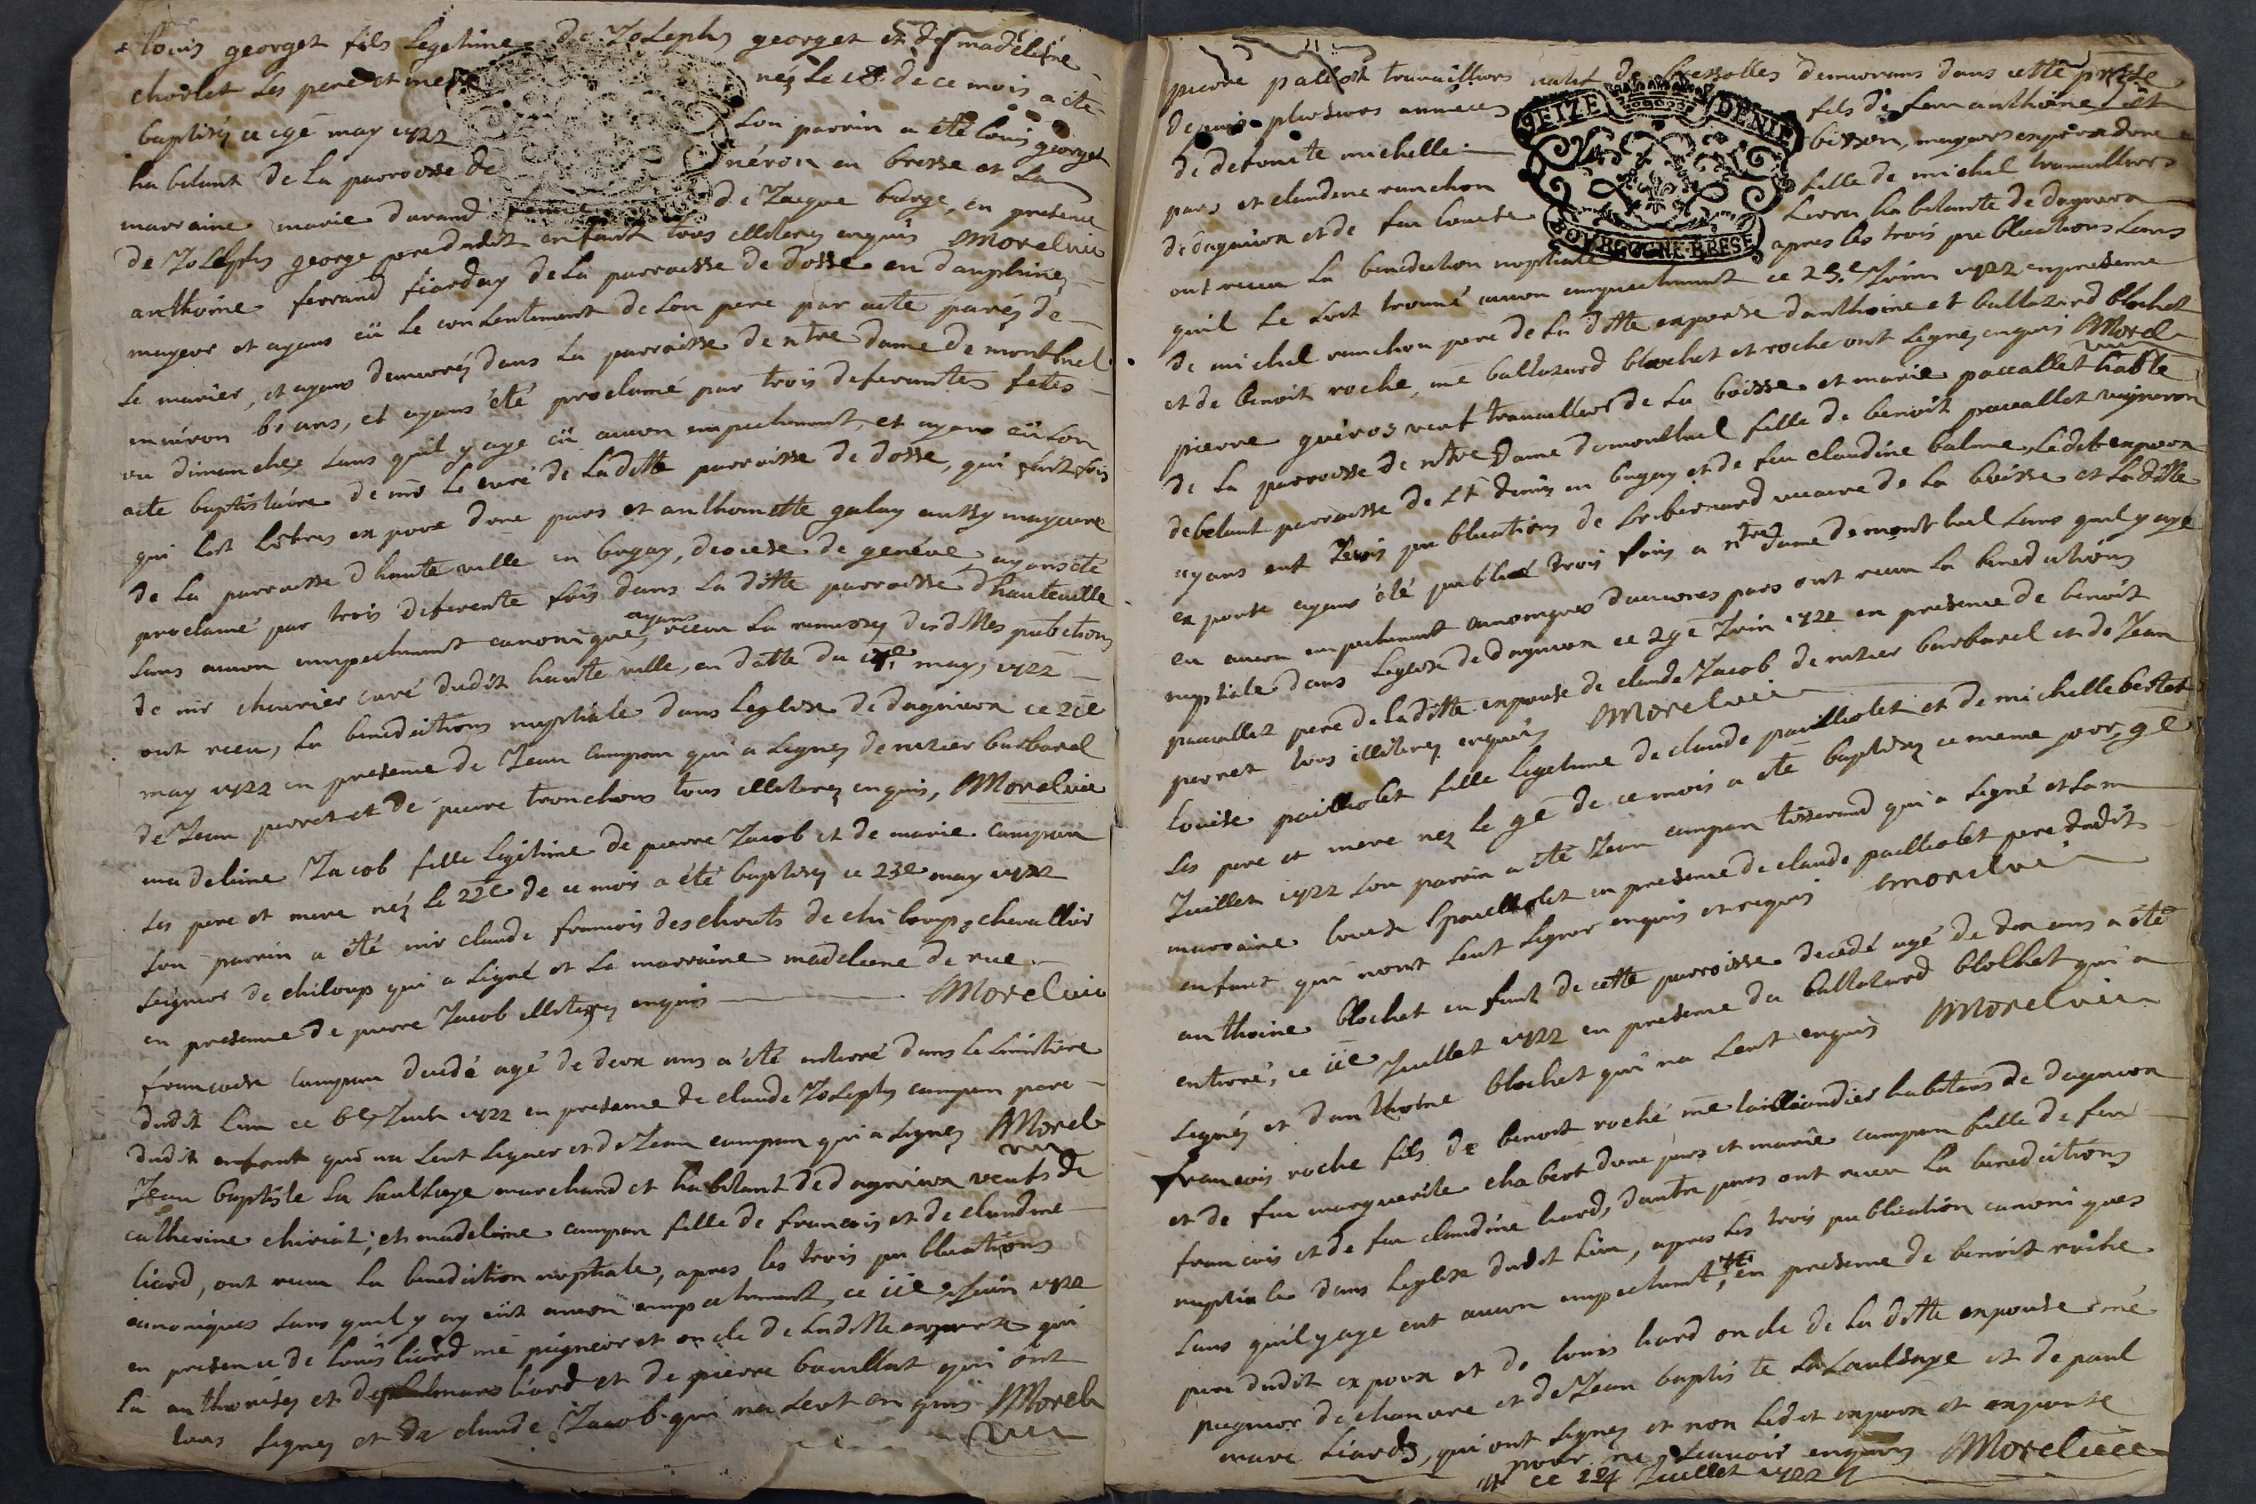 louis georget fils legetime de Joseph georget et de madeleine
chorlet ses pere et mere nez le 18e de ce mois a ete
baptisez ce 19e may 1722 son parrin a été louis georget
habitant de la parroisse de néron en bresse et la
marraine marie durand femme de Jacque barge, en presence
de Joseph george pere dudit enfant tous illiterez enquis Morel vic
anthoine ferrand fiarday de la parroisse de dosse en dauphinez
mayeur et ayans eü le consentement de son pere par acte parez de
se marier, et ayans demeurez dans la parroisse de ntre dame de montluel
environ 6 ans, et ayans été proclamé par trois deferantes fetes
ou dimanches sans quil y aye eü aucun empechement, et ayans eü son
acte baptistaire de mr le curé de laditte parroisse de dosse, qui
qui soit libres expoux dune pars et anthoinette galay aussy mayeure
de la parroisse d hauteville en bugay, diocese de genéve, ayans été
proclamé par trois deferente fois dans la ditte parroisse d hauteville
sans aucun empechement canonique, ayans receu la remissez desdittes pubctions
de mr chevrier curé dudit hauteville, en datte du 17e may, 1722
ont receu, la benedictions nuptiale dans leglise de dagnieux ce 20e
may 1722 en presence de Jean campan qui a signez de nizier barbarel
de Jean perret et de pierre tronchon tous illiterez enquis, Morel vic
madeleine Jacob fille legitime de pierre Jacob et de marie campan
ses pere et mere néz le 22e de ce mois a été baptisez ce 23e may 1722
son parrin a été mr claude francois deschents de chiloup, chevallier
seigneur de chiloup qui a signé et la marraine madeleine de rue
en presence de pierre Jacob illiterez enquis Morel vic
francoise campan decedé agé de deux ans a été enterré dans le simetiere
dudit lieu ce 6e Juin 1722 en presence de claude Joseph campan pere
dudit enfant qui na seut signer et de Jean campan qui a signez Morel vic
Jean baptiste la saulsaye marchand et habitant de dagnieux veufs de
catherine chiriat, et madeleine campan fille de francois et de claudine
liard, ont receu la benediction nuptiale, apres les trois publications
canoniques sans quil y ay eüt aucun empechement, ce 11e Juin 1722
en presence de louis liard me pigneur et oncle de laditte expouse qui
la authorisez et de marc liard et de pierre bouillat qui ont
tous signez et de claude Jacob qui na seut enquis Morel vic
pierre pallost travaillieurs natif de bressolles demeurans dans cette prsse
depuis plusieurs années fils de feu anthoine et
de defunte michelle bisson, mayeurs expoux dune
pars et claudine runchon fille de michel travaillieurs
de dagnieux et de feu louise habitante de dagneux
ont receu la benediction nuptiale apres les trois publications sans
quil se soit trouvé aucun empechement ce 23e Juin 1722 en presence
de michel runchon pere de la ditte expouse danthoine et baltazard blochet
et de benoit roche, me baltazard blochet et roche ont signez enquis Morel vic
pierre guéros veuf travaillieur de la boisse et marie pacallet hable
de la parroisse de ntre dame de montluel fille de benoit pacallet vigneron
debelant parroisse de st denis en bugay et de feu claudine balme, ledit expoux
ayans eut trois publications de Sr bernard vicaire de la boisse et laditte
expouse ayans été publieé trois fois a ntre dame de montluel sans quil y aye
eu aucun empechement canonques dautres pars ont receu la benedictions
nuptiale dans leglise de dagnieux ce 29e Juin 1722 en presence de benoit
pacallet pere de la ditte expouse de claude Jacob de nizier barbarel et de Jean
perret tous illiterez enquis Morel vic
louise pailliolet fille legetime de claude pailliolet et de michelle bertet
ses pere et mere nez le 9e de ce mois a été baptisez ce meme jour, 9e
Juillet 1722 son parrin a été Jean campan tisserand qui a signé et sa m
marraine louise pailliolet en presence de claude pailliolet pere dudit
enfant qui nont seut signer enquis et requis Morel vic
anthoine blochet enfant de cette parroisse decedé agé de dix ans a été
entерré, ce 11e Juillet 1722 en presence du baltazard blochet qui a
signéz et danthoine blochet qui na seut enquis Morel vic
francois roche fils de benoit roché me tailliandier habitans de dagnieux
et de feu marguerite chabert dune pars et marie campan fille de feu
francois et de feu claudine liard, dautre pars ont receu la benedictions
nuptiales dans leglise dudit lieu, apres les trois publication canoniques
sans quil y aye eut aucun empechement, # en presence de benoit roche
pere dudit expoux et de louis liard oncle de la ditte expouse me
pugneur de chanvre et de Jean baptiste la saulsaye et de paul
marc liards, qui ont signez et non ledit expoux et expouse
pour ne scavoir enquis Morel vic
# ce 24 Juillet 1722
SEIZE DENIE
BOVRGOGNE-BRESE